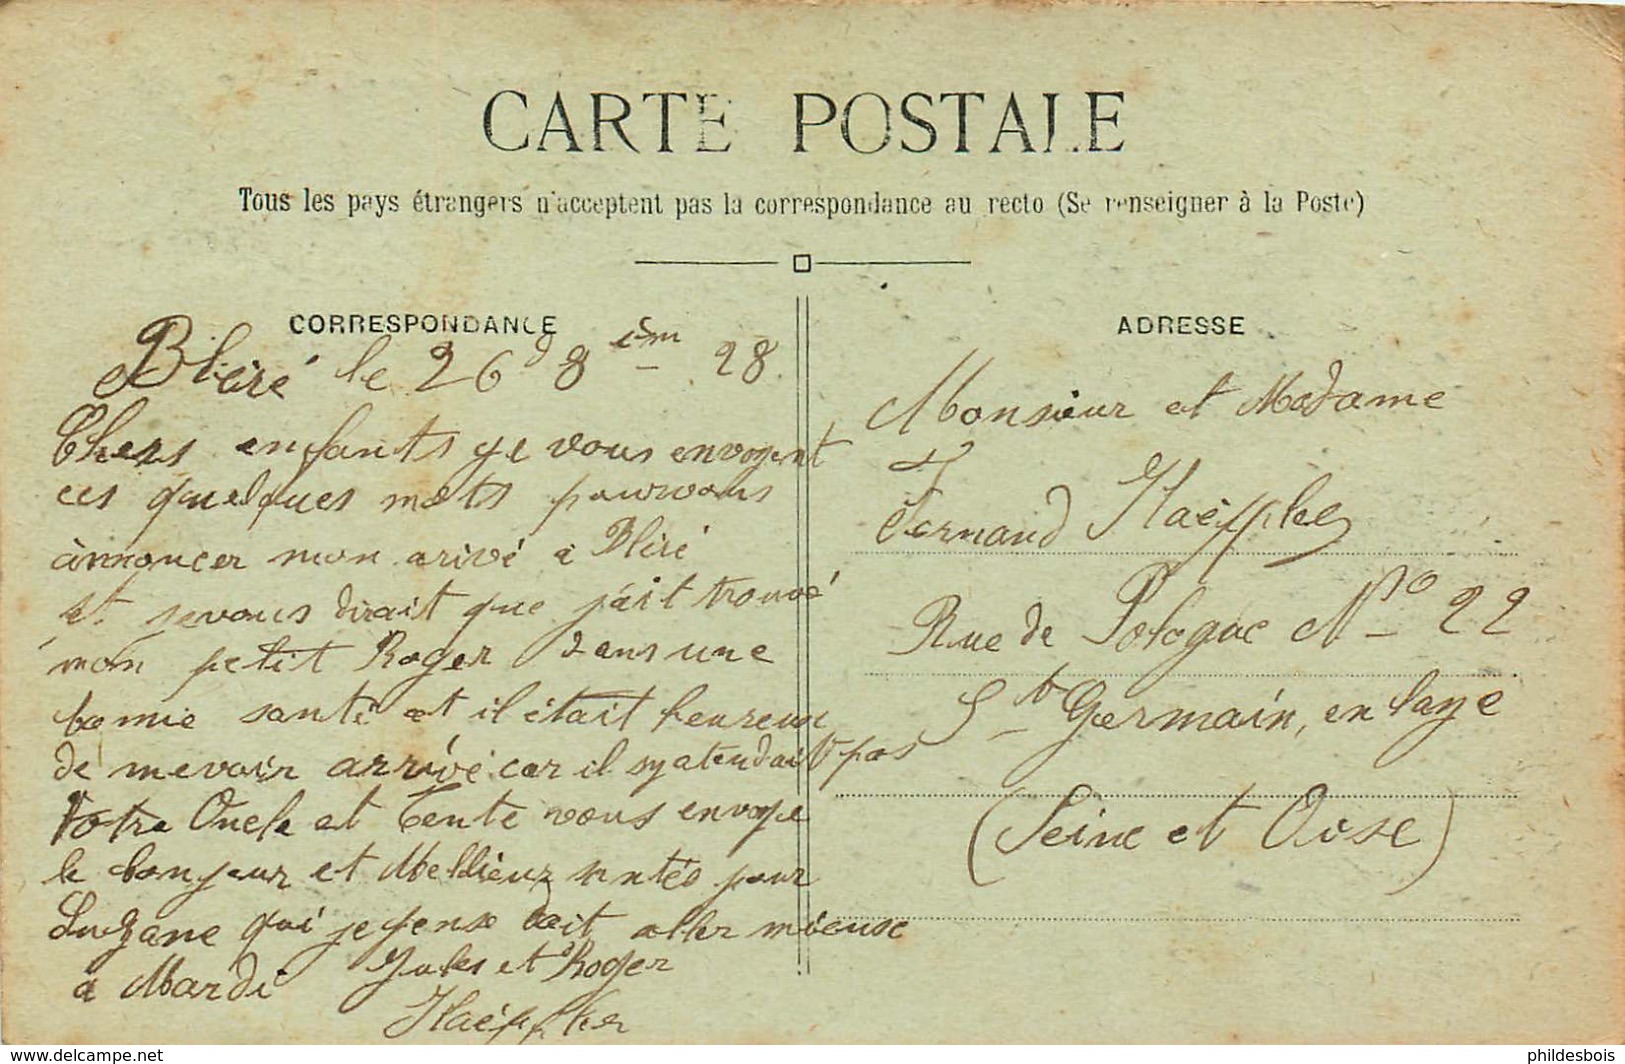 CARTE POSTALE
Tous les pays étrangers n'acceptent pas la correspondance au recto (Se renseigner à la Poste)
CORRESPONDANCE
Bléré le 26 8 28.
Chers enfants je vous envoyent
ces quelques mots pourvous
annoncer mon arivé a Bléré
et sevous dirait que jait trouvé
mon petit Roger dans une
bonnie santé et il était heureux
de mevoir arrivé car il syatendait pas
Votre Oncle et Tente vous envoye
le bonjour et Mellieur santés pour
Suzane qui je pense doit aller mieuse
a Mardi Jules et Roger
Haeffler
ADRESSE
Monsieur et Madame
Fernand Haeffler
Rue de Pologne No 22
St Germain, en laye
(Seine et Oise)
www.delcampe.net
phildesbois